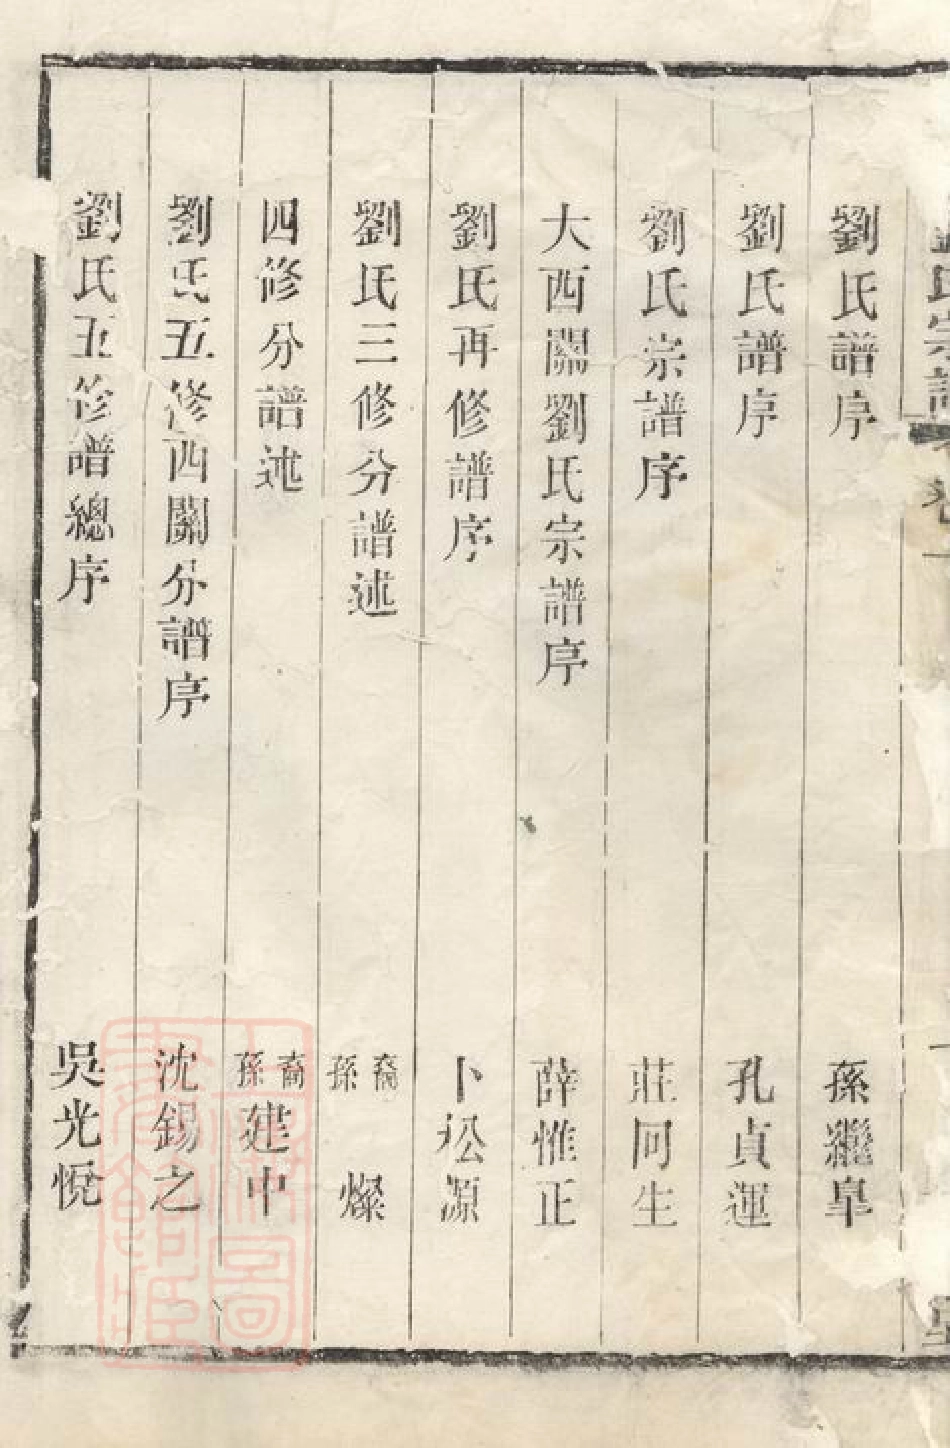 劉氏宗譜 卷一 一
劉氏譜序 孫繼皐
劉氏譜序 孔貞運
劉氏宗譜序 莊同生
大西關劉氏宗譜序 薛惟正
劉氏再修譜序 卜㳂源
劉氏三修分譜述 裔孫燦
四修分譜述 裔孫建中
劉氏五修西關分譜序 沈錫之
劉氏五修譜總序 吳光悅